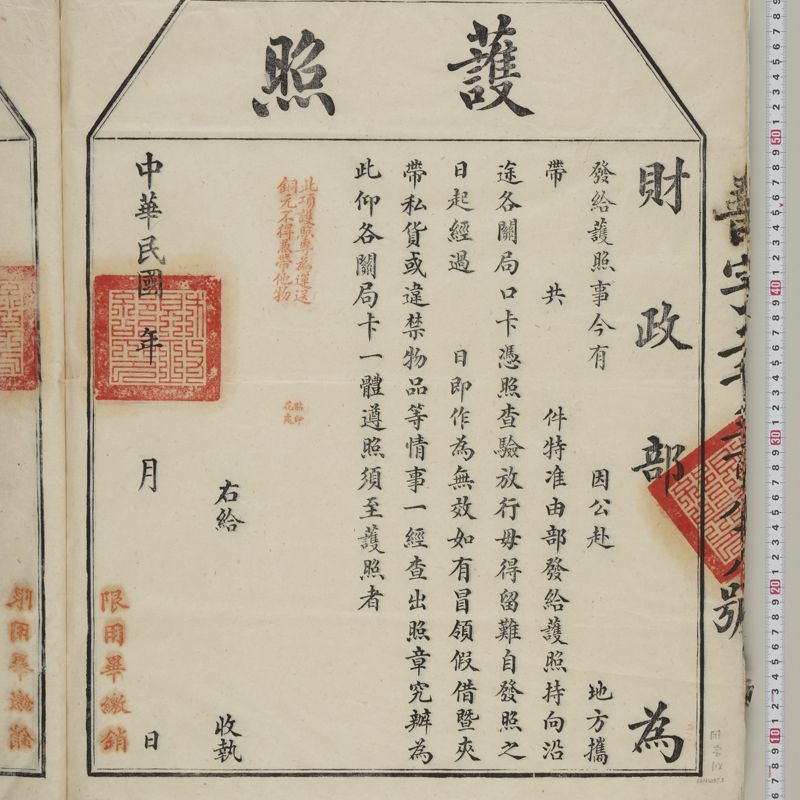 護照
財政部為
發給護照事今有 因公赴 地方攜
帶 共 件特准由部發給護照持向沿
途各關局口卡憑照查驗放行毋得留難自發照之
日起經過 日即作為無效如有冒領假借暨夾
帶私貨或違禁物品等情事一經查出照章究辦為
此仰各關局卡一體遵照須至護照者
此項護照專為運送
銅元不得夾帶他物
貼印
花處
右給 收執
中華民國 年 月 日
限用畢繳銷
限用畢繳銷